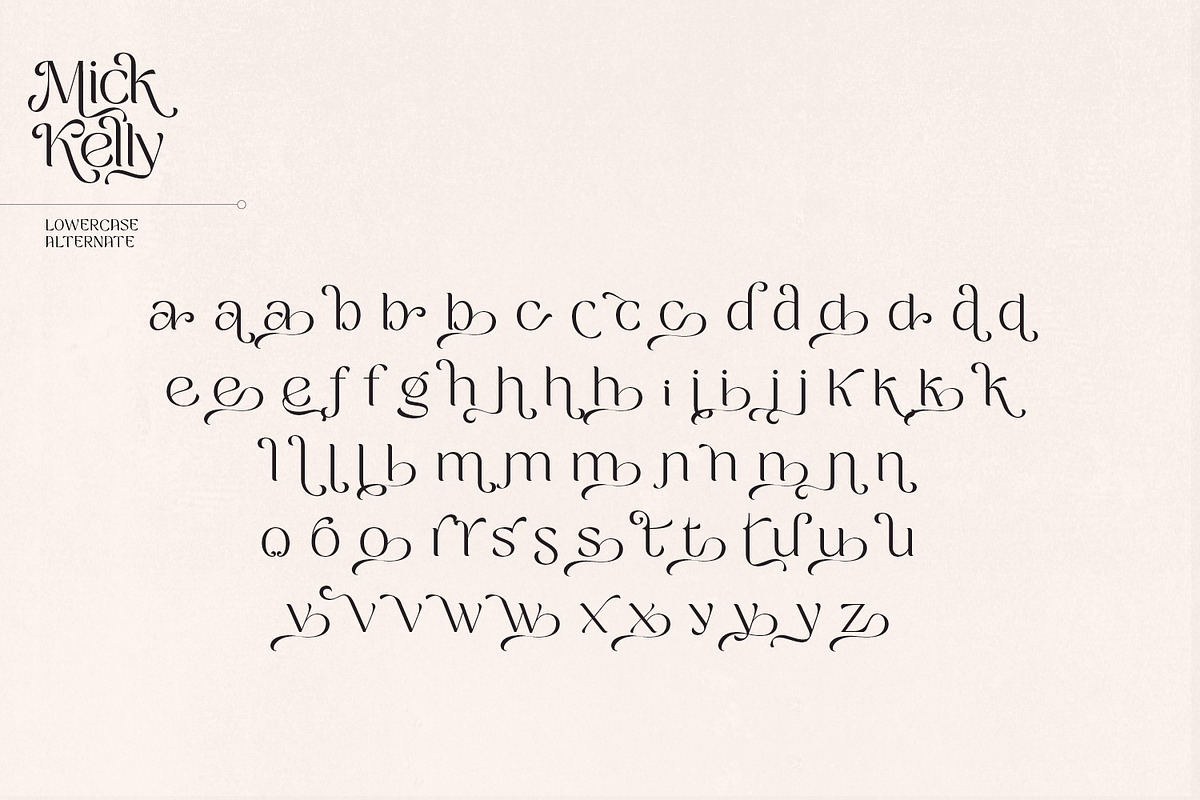 Mick
Kelly
LOWERCASE
ALTERNATE
a a a b b b c c c c d d d d d d
e e e f f g h h h h i i i j j k k k k
l l l l l m m m n n n n n
o o o r r s s s t t t u u u
v v v w w x x y y y z